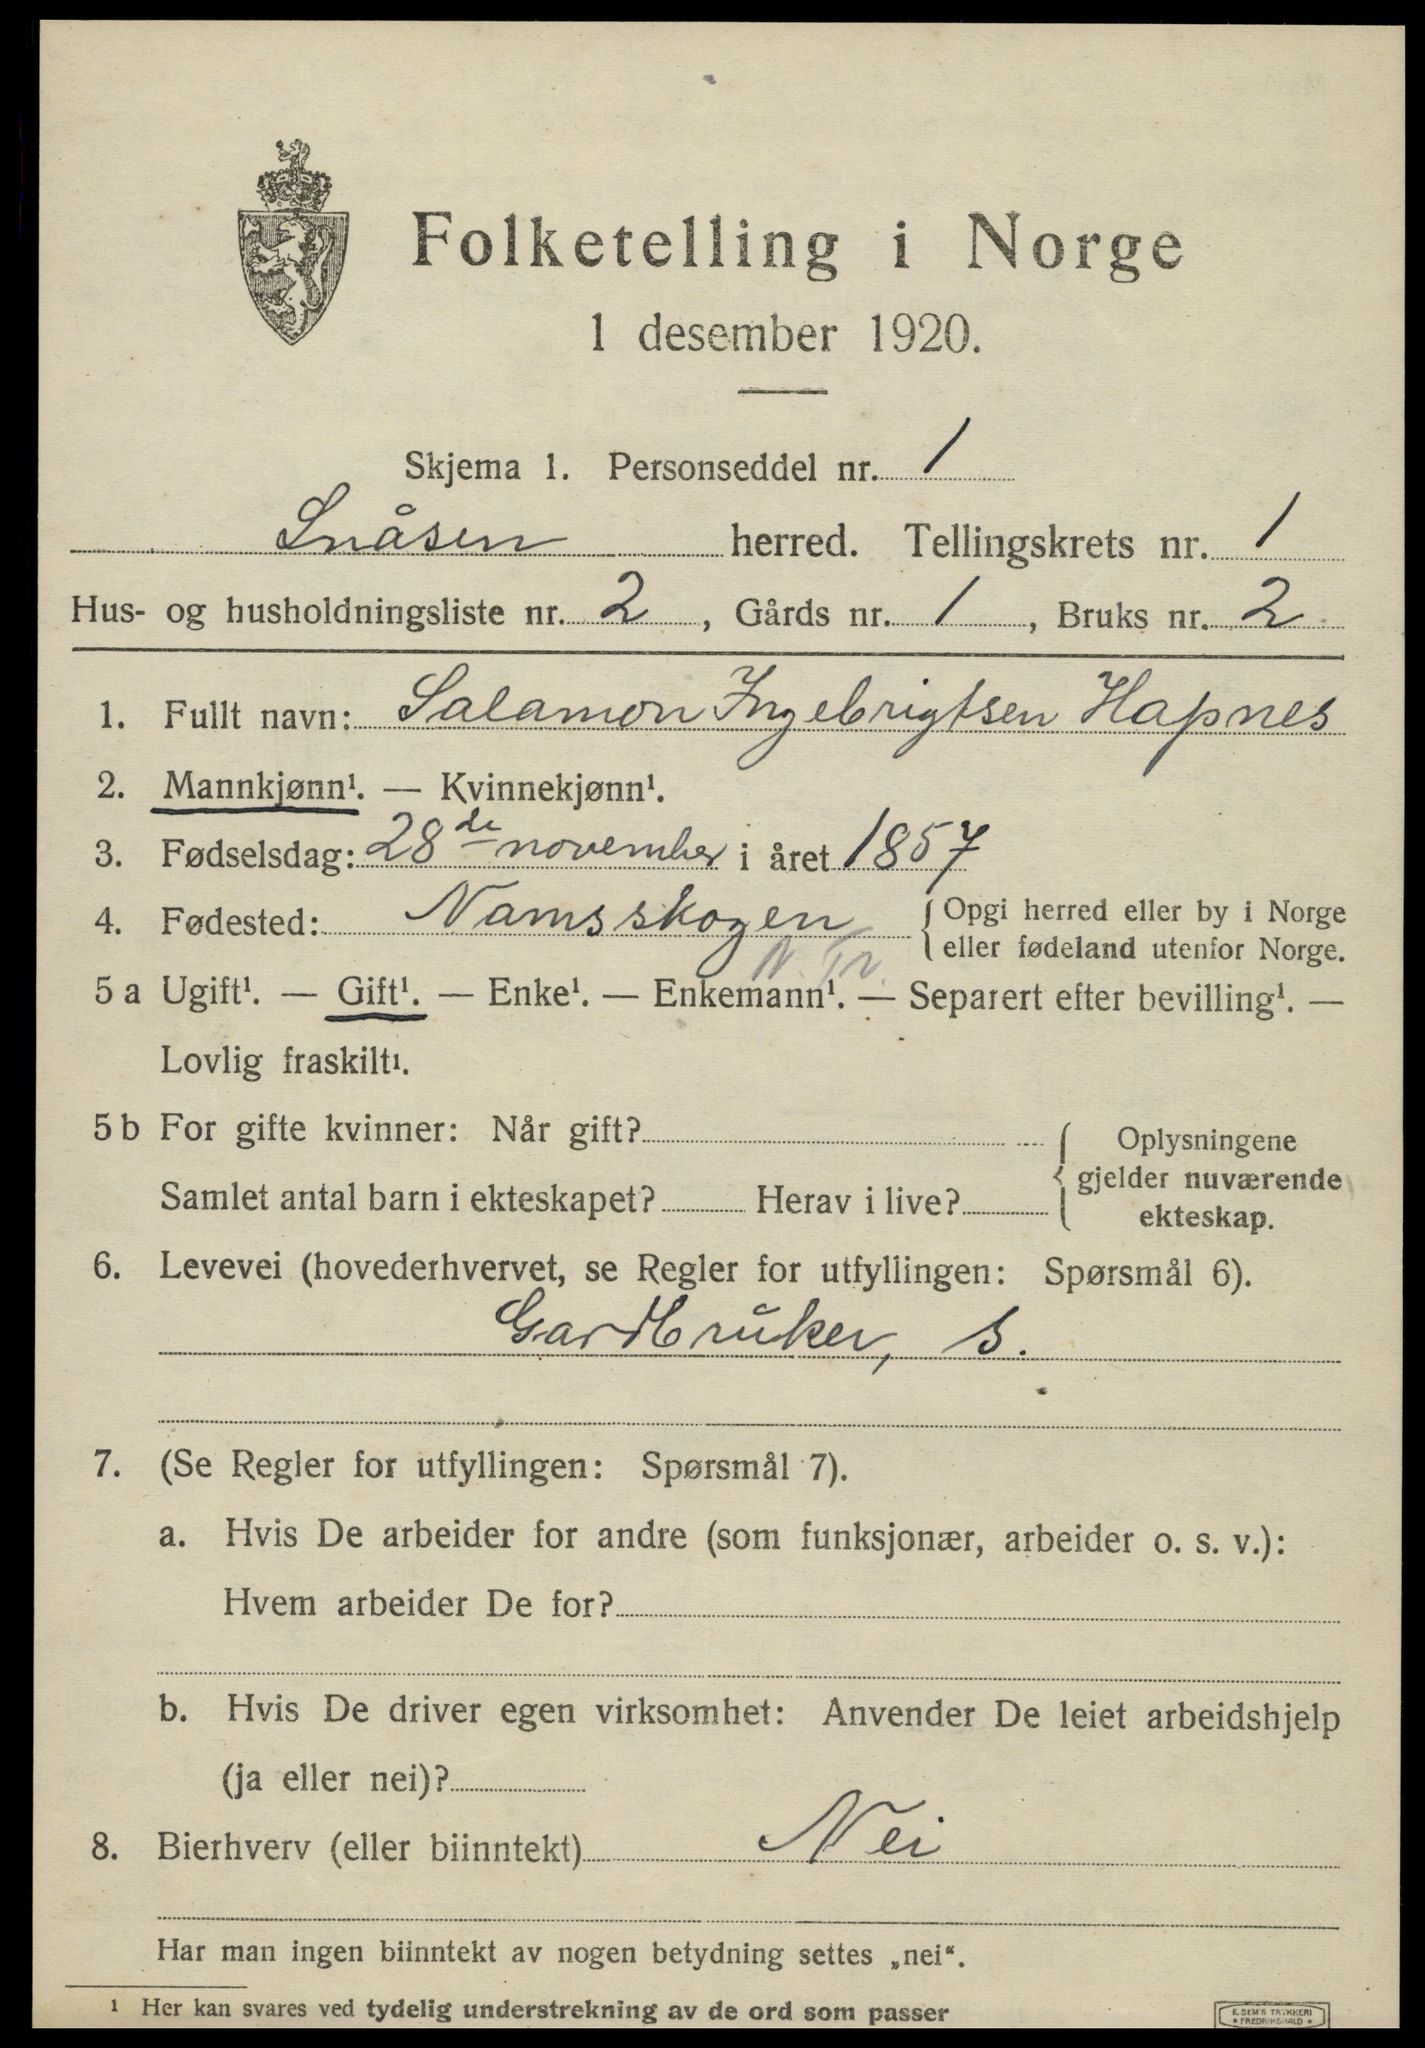 Folketelling i Norge
1 desember 1920.
Skjema 1. Personseddel nr. 1
Snåsen herred. Tellingskrets nr. 1
Hus- og husholdningsliste nr. 2, Gårds nr. 1, Bruks nr. 2
1. Fullt navn: Salamon Ingebrigtsen Hapnes
2. Mannkjønn¹. — Kvinnekjønn¹.
3. Fødselsdag: 28de november i året 1857
4. Fødested: Namsskogen {Opgi herred eller by i Norge
eller fødeland utenfor Norge.
N. Tr.
5 a Ugift¹. — Gift¹. — Enke¹. — Enkemann¹. — Separert efter bevilling¹. —
Lovlig fraskilt¹.
5 b For gifte kvinner: Når gift? { Oplysningene
gjelder nuværende
Samlet antal barn i ekteskapet? Herav i live?
ekteskap.
6. Levevei (hovederhvervet, se Regler for utfyllingen: Spørsmål 6).
Gardbruker, S.
7. (Se Regler for utfyllingen: Spørsmål 7).
a. Hvis De arbeider for andre (som funksjonær, arbeider o. s. v.):
Hvem arbeider De for?
b. Hvis De driver egen virksomhet: Anvender De leiet arbeidshjelp
(ja eller nei)?
8. Bierhverv (eller biinntekt) Nei
Har man ingen biinntekt av nogen betydning settes „nei“.
¹ Her kan svares ved tydelig understrekning av de ord som passer
E. SEM'S TRYKKERI
FREDRIKSHALD